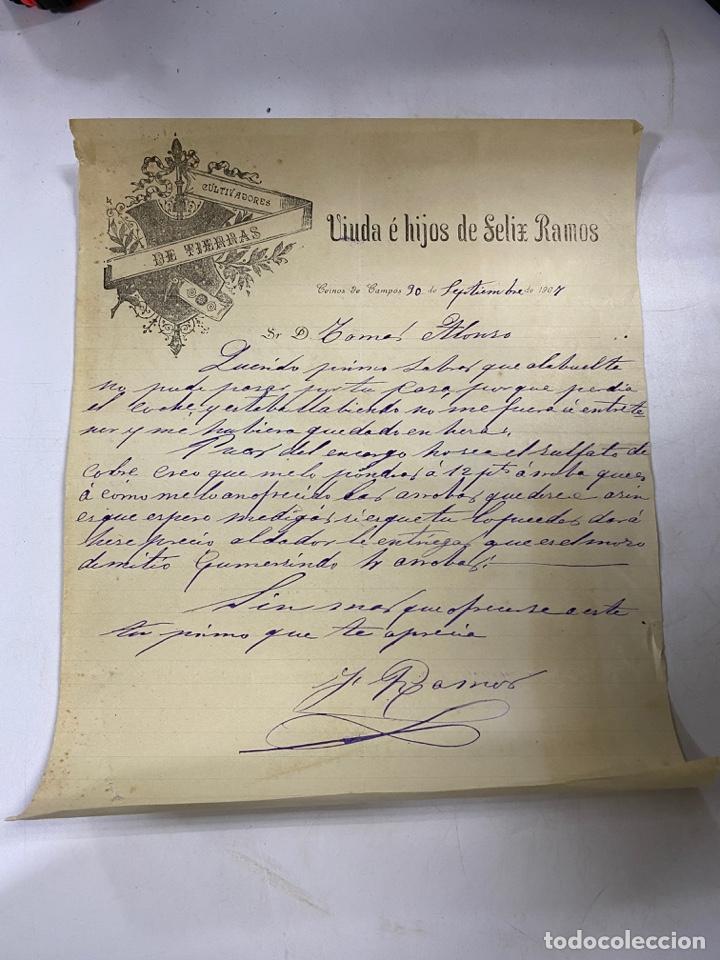 CULTIVADORES
DE TIERRAS
Viuda é hijos de Felix Ramos
Ceinos de Campos 30 de Septiembre de 1907
Sr. D. Tomas Alonso
Querido primo sabras que alabuelta
no pude pasar por tu casa, porque perdia
el coche y estaba llabiendo no me fuera a entrete
ner y me hubiera quedado en
Pues del encargo hosea el sulfato de
cobre creo que melo pondras á 12 pts arroba que es
á como melo an ofrecido las arrobas que dese e asin
es que espero medigas si es que tu lo puedes dar á
hese precio al dador le entregas que es el mozo
demitio Gumersindo 4 arrobas.
Sin mas que ofrecerse a este
tu primo que te aprecia
J. Ramos
todocoleccion
todocoleccion.net